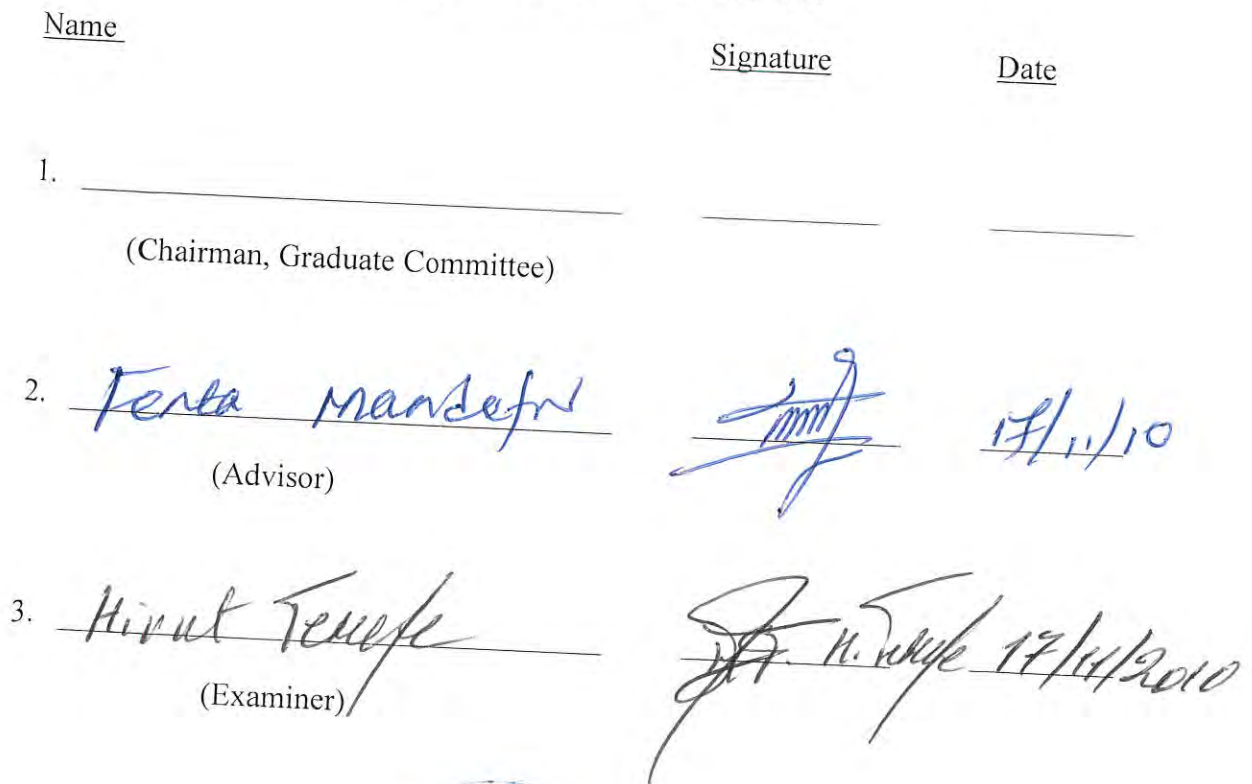 Name Signature Date
1.
(Chairman, Graduate Committee)
2. Fenta Mandefro 17/11/10
(Advisor)
3. Hirut Terefe Dr. H. Terefe 17/11/2010
(Examiner)